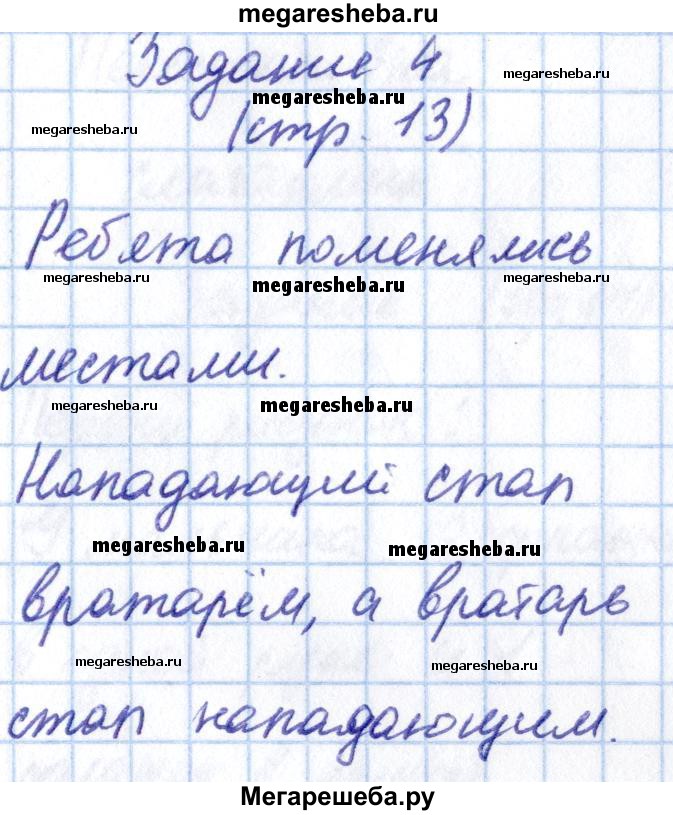 megaresheba.ru
Задание 4
megaresheba.ru
megaresheba.ru
megaresheba.ru
(стр. 13)
Ребята поменялись
megaresheba.ru megaresheba.ru megaresheba.ru
местами.
megaresheba.ru megaresheba.ru
Нападающий стал
megaresheba.ru megaresheba.ru
вратарём, а вратарь
megaresheba.ru megaresheba.ru
стал нападающим.
Мегарешеба.ру